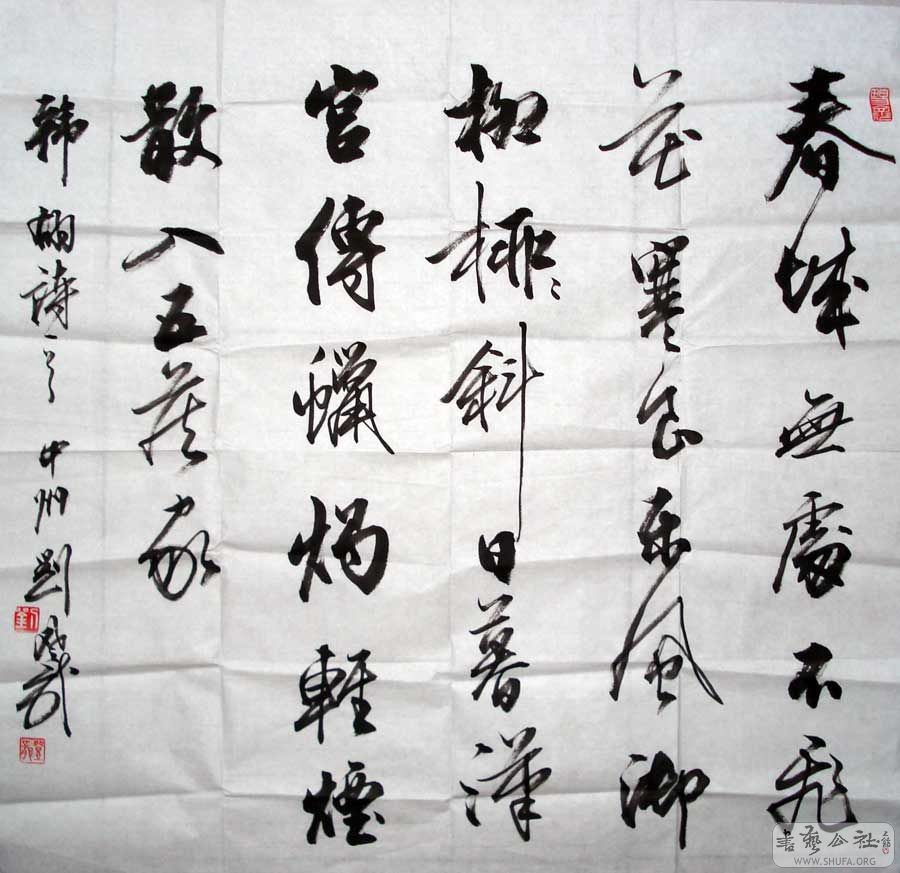 春城無處不飛
花寒食東風御
柳斜日暮漢
宮傳蠟燭輕煙
散入五侯家
韓翃詩一首 中州劉
劉
書藝公社
WWW.SHUFA.ORG